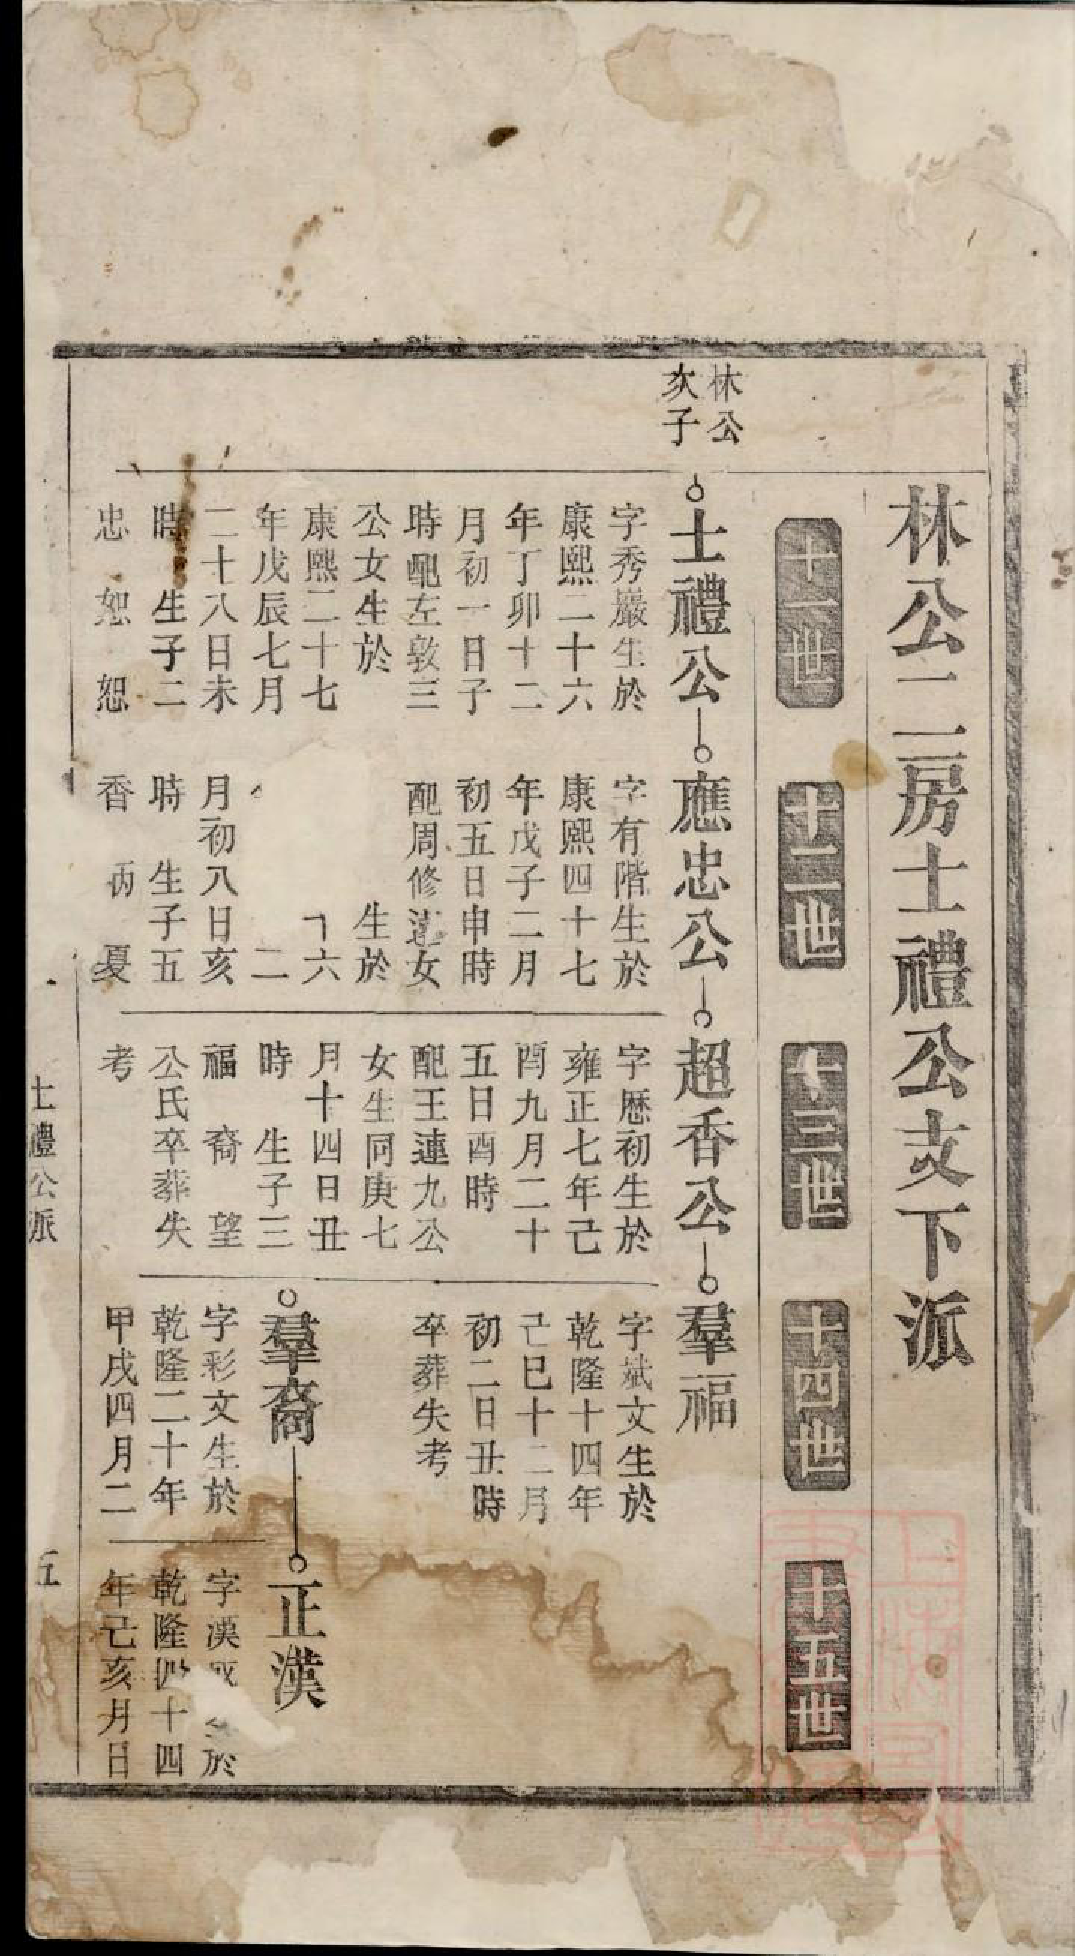 林公二房士禮公支下派
十一世
十二世
十三世
十四世
十五世
林公
次子
士禮公
字秀巖生於
康熙二十六
年丁卯十二
月初一日子
時配左敦三
公女生於
康熙二十七
年戊辰七月
二十八日未
時 生子二
忠 恕
應忠公
字有階生於
康熙四十七
年戊子二月
初五日申時
配周修遠女
生於
六
二
月初八日亥
時 生子五
香 夏
超香公
字歷初生於
雍正七年己
酉九月二十
五日酉時
配王連九公
女生同庚七
月十四日丑
時 生子三
福 裔 望
公氏卒葬失
考
羣福
字斌文生於
乾隆十四年
己巳十二月
初二日丑時
卒葬失考
羣裔
字彩文生於
乾隆二十年
甲戌四月二
正漢
字漢 於
乾隆四十四
年己亥月日
士禮公派
五